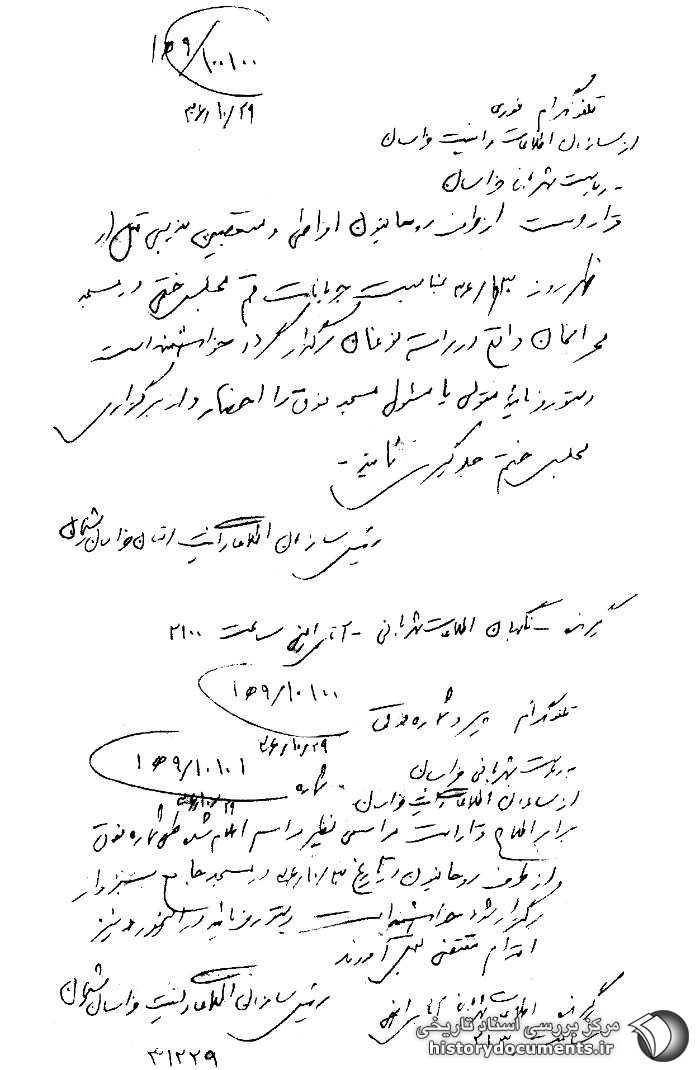 ۱۰۱۰۰/ ۹ ه‍ ۱
۳۶/۱۰/۲۹
تلفنگرام فوری
از سازمان اطلاعات و امنیت خراسان
به ریاست شهربانی خراسان
قرار است از طرف روحانیون افراطی و متعصبین مذهبی قبل از
ظهر روز ۳۶/۱۰/۳۰ بمناسبت جریانات قم مجلس ختمی در مسجد
محرابخان واقع در راسته نوغان برگزار گردد خواهشمند است
دستور فرمائید متولی یا مسئول مسجد فوق را احضار و از برگزاری
مجلس ختم جلوگیری نمایند -
رئیس سازمان اطلاعات و امنیت استان خراسان
گیرنده - نگهبان اطلاعات شهربانی - آقای ساعت ۲۱۰۰
۱۰۱۰۰/ ۹ ه‍ ۱
تلفنگرام پیرو شماره فوق
۳۶/۱۰/۲۹
به ریاست شهربانی خراسان
شماره ۱۰۱۰۱/ ۹ ه‍ ۱
از سازمان اطلاعات و امنیت خراسان
۳۶/۱۰/۲۹
برابر اطلاع قرار است مراسمی نظیر مراسم اعلام شده طی شماره فوق
از طرف روحانیون در تاریخ ۳۶/۱۰/۳۰ در مسجد جامع سبزوار
برگزار شود خواهشمند است دستور فرمائید در این مورد نیز
اقدام مقتضی بعمل آورند
رئیس سازمان اطلاعات و امنیت خراسان
گیرنده اطلاعات شهربانی آقای
۳۱۲۲۹
مرکز بررسی اسناد تاریخی
historydocuments.ir